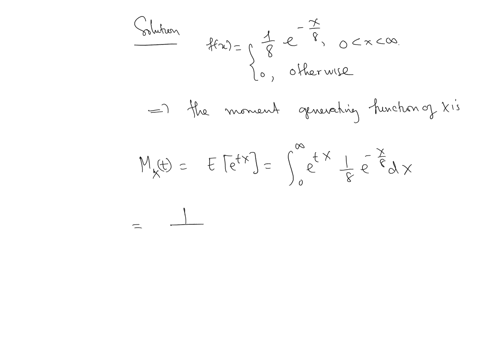 Solution f(x) = { 1/8 e^{-x/8}, 0 < x < ∞
0, otherwise
=> the moment generating function of X is
M_X(t) = E[e^{tX}] = ∫_0^∞ e^{tx} 1/8 e^{-x/8} dx
= 1/